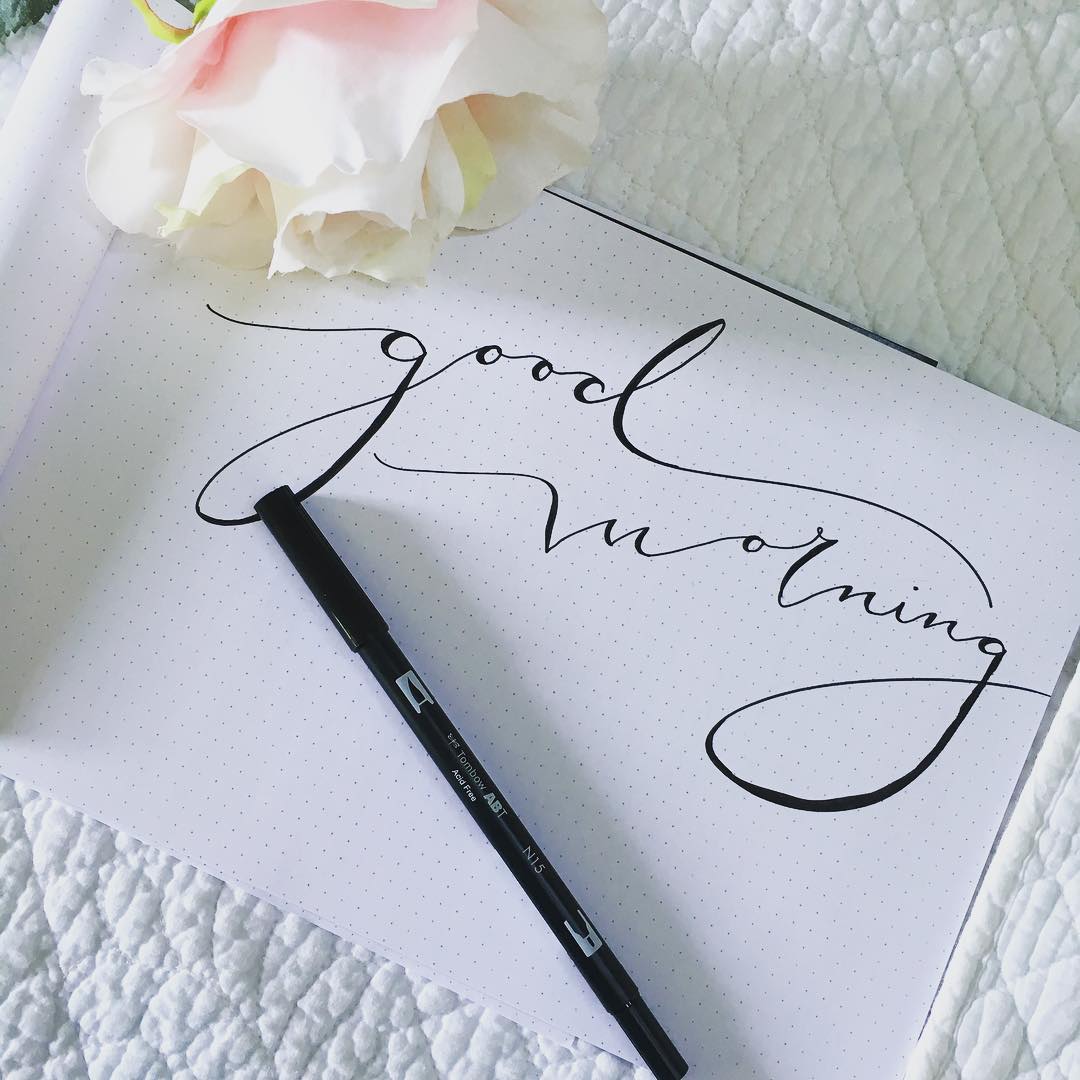 good
morning
Tombow ABT
Acid Free
N15